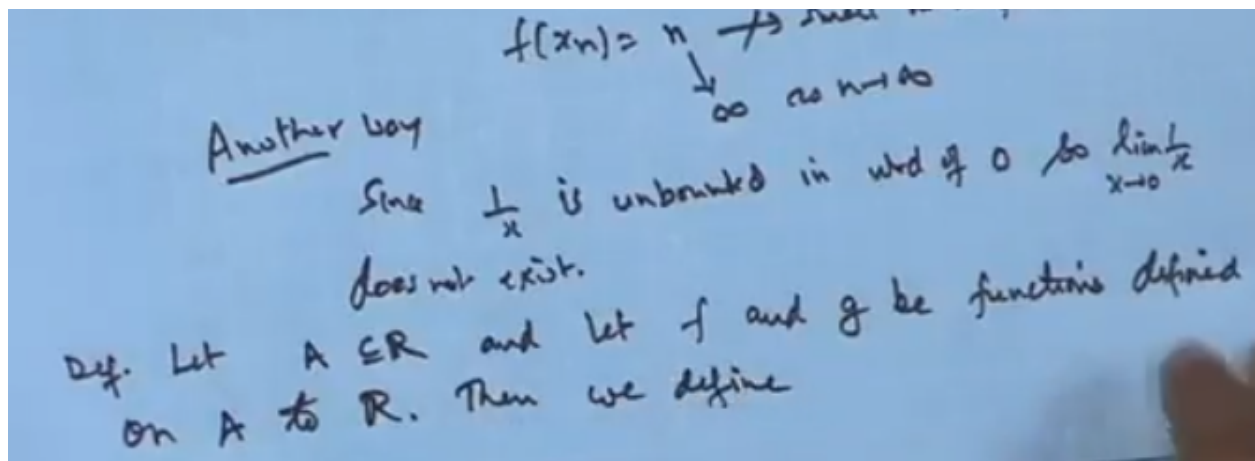 f(xn) = n ↛
↓
∞ as n→∞
Another way
Since 1/x is unbounded in nbd of 0 so lim x→0 1/x
does not exist.
Def. Let A ⊆ R and let f and g be functions defined
on A to R. Then we define